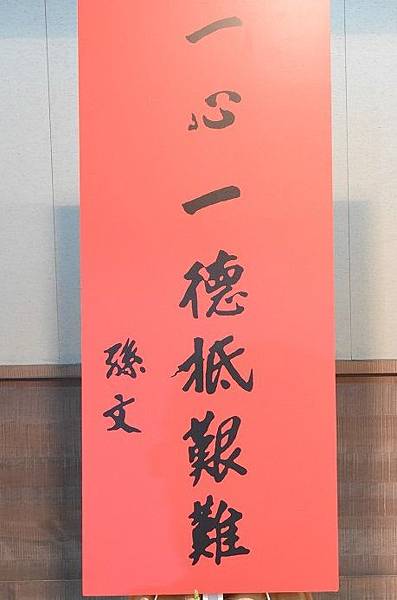 一心一德抵艱難
孫文